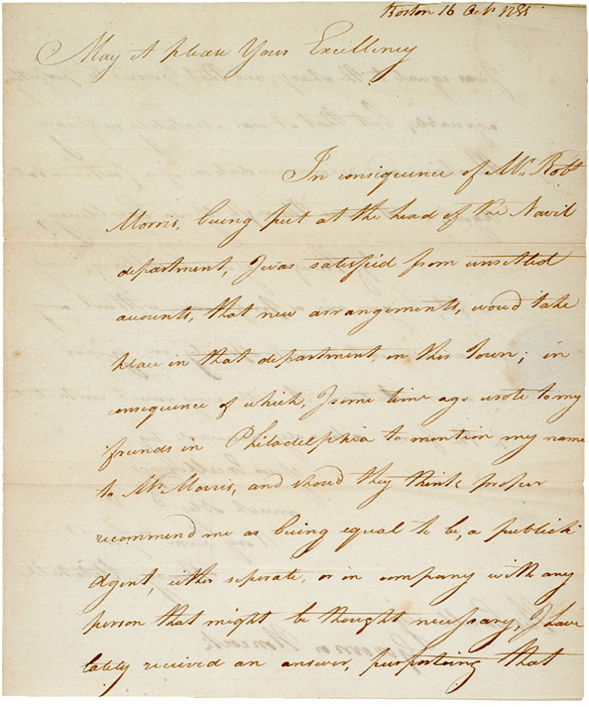 Boston 16 Octr 1781
May it please Your Excellency
In consiquence of Mr. Robt
Morris, being put at the head of the Navil
department, I was satisfied from unsetled
acounts, that new arrangements, would take
place in that department, in this Town; in
consequence of which, I some time ago wrote to my
friends in Philadelphia to mention my name
to Mr. Morris, and should they think proper
recommend me as being equal to be, a publick
Agent, either seperate, or in company with any
person that might be thought necessary, I have
lately received an answer, purporting that